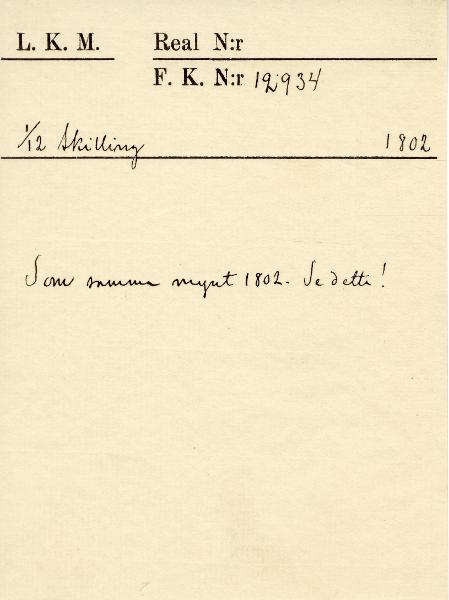 L. K. M. Real N:r
F. K. N:r 12934
1/12 Skilling 1802
Som samma mynt 1802. Se detta!